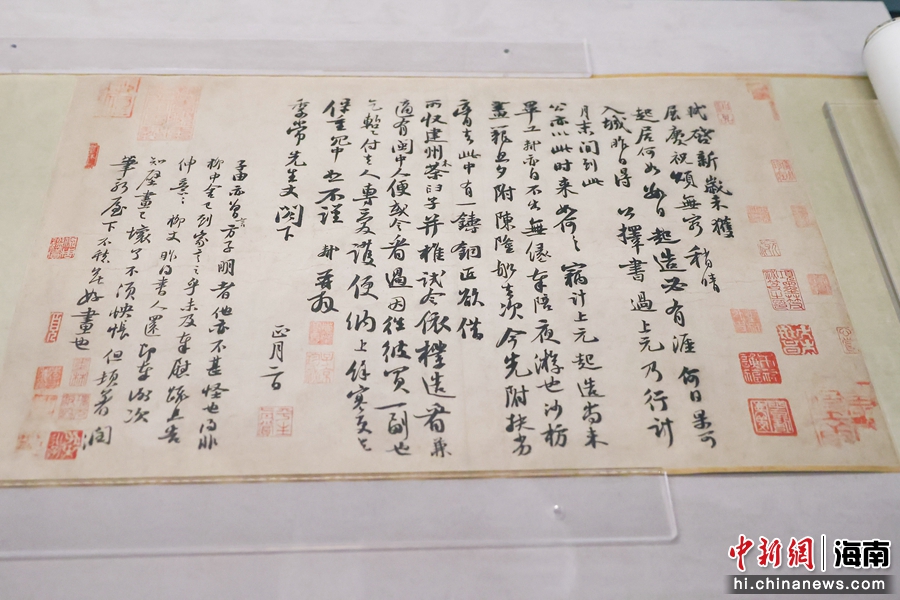 軾啓新歲未獲
展慶祝頌無窮稍晴
起居何如數日起造必有涯何日果可
入城昨日得公擇書過上元乃行計
月末間到此
公亦以此時來如何々竊計上元起造尚未
畢工軾亦自不出無緣奉陪夜游也沙枋
畫籠旦夕附陳隆船去次今先附扶劣
膏去此中有一鑄銅匠欲借
所收建州木茶臼子并椎試令依樣造看兼
適有閩中人便或令看過因往彼買一副也
乞暫付去人專愛護便納上餘寒更乞
保重冗中恕不謹軾再拜
季常先生丈閤下
正月二日
子由亦曾言方子明者他亦不甚怪也得非
柳中舍已到家言之乎未及奉慰疏且告
伸意々柳丈昨得書人還即奉謝次
知壁畫已壞了不須怏悵但頓著潤
筆新屋下不愁無好畫也
中新網 海南
hi.chinanews.com